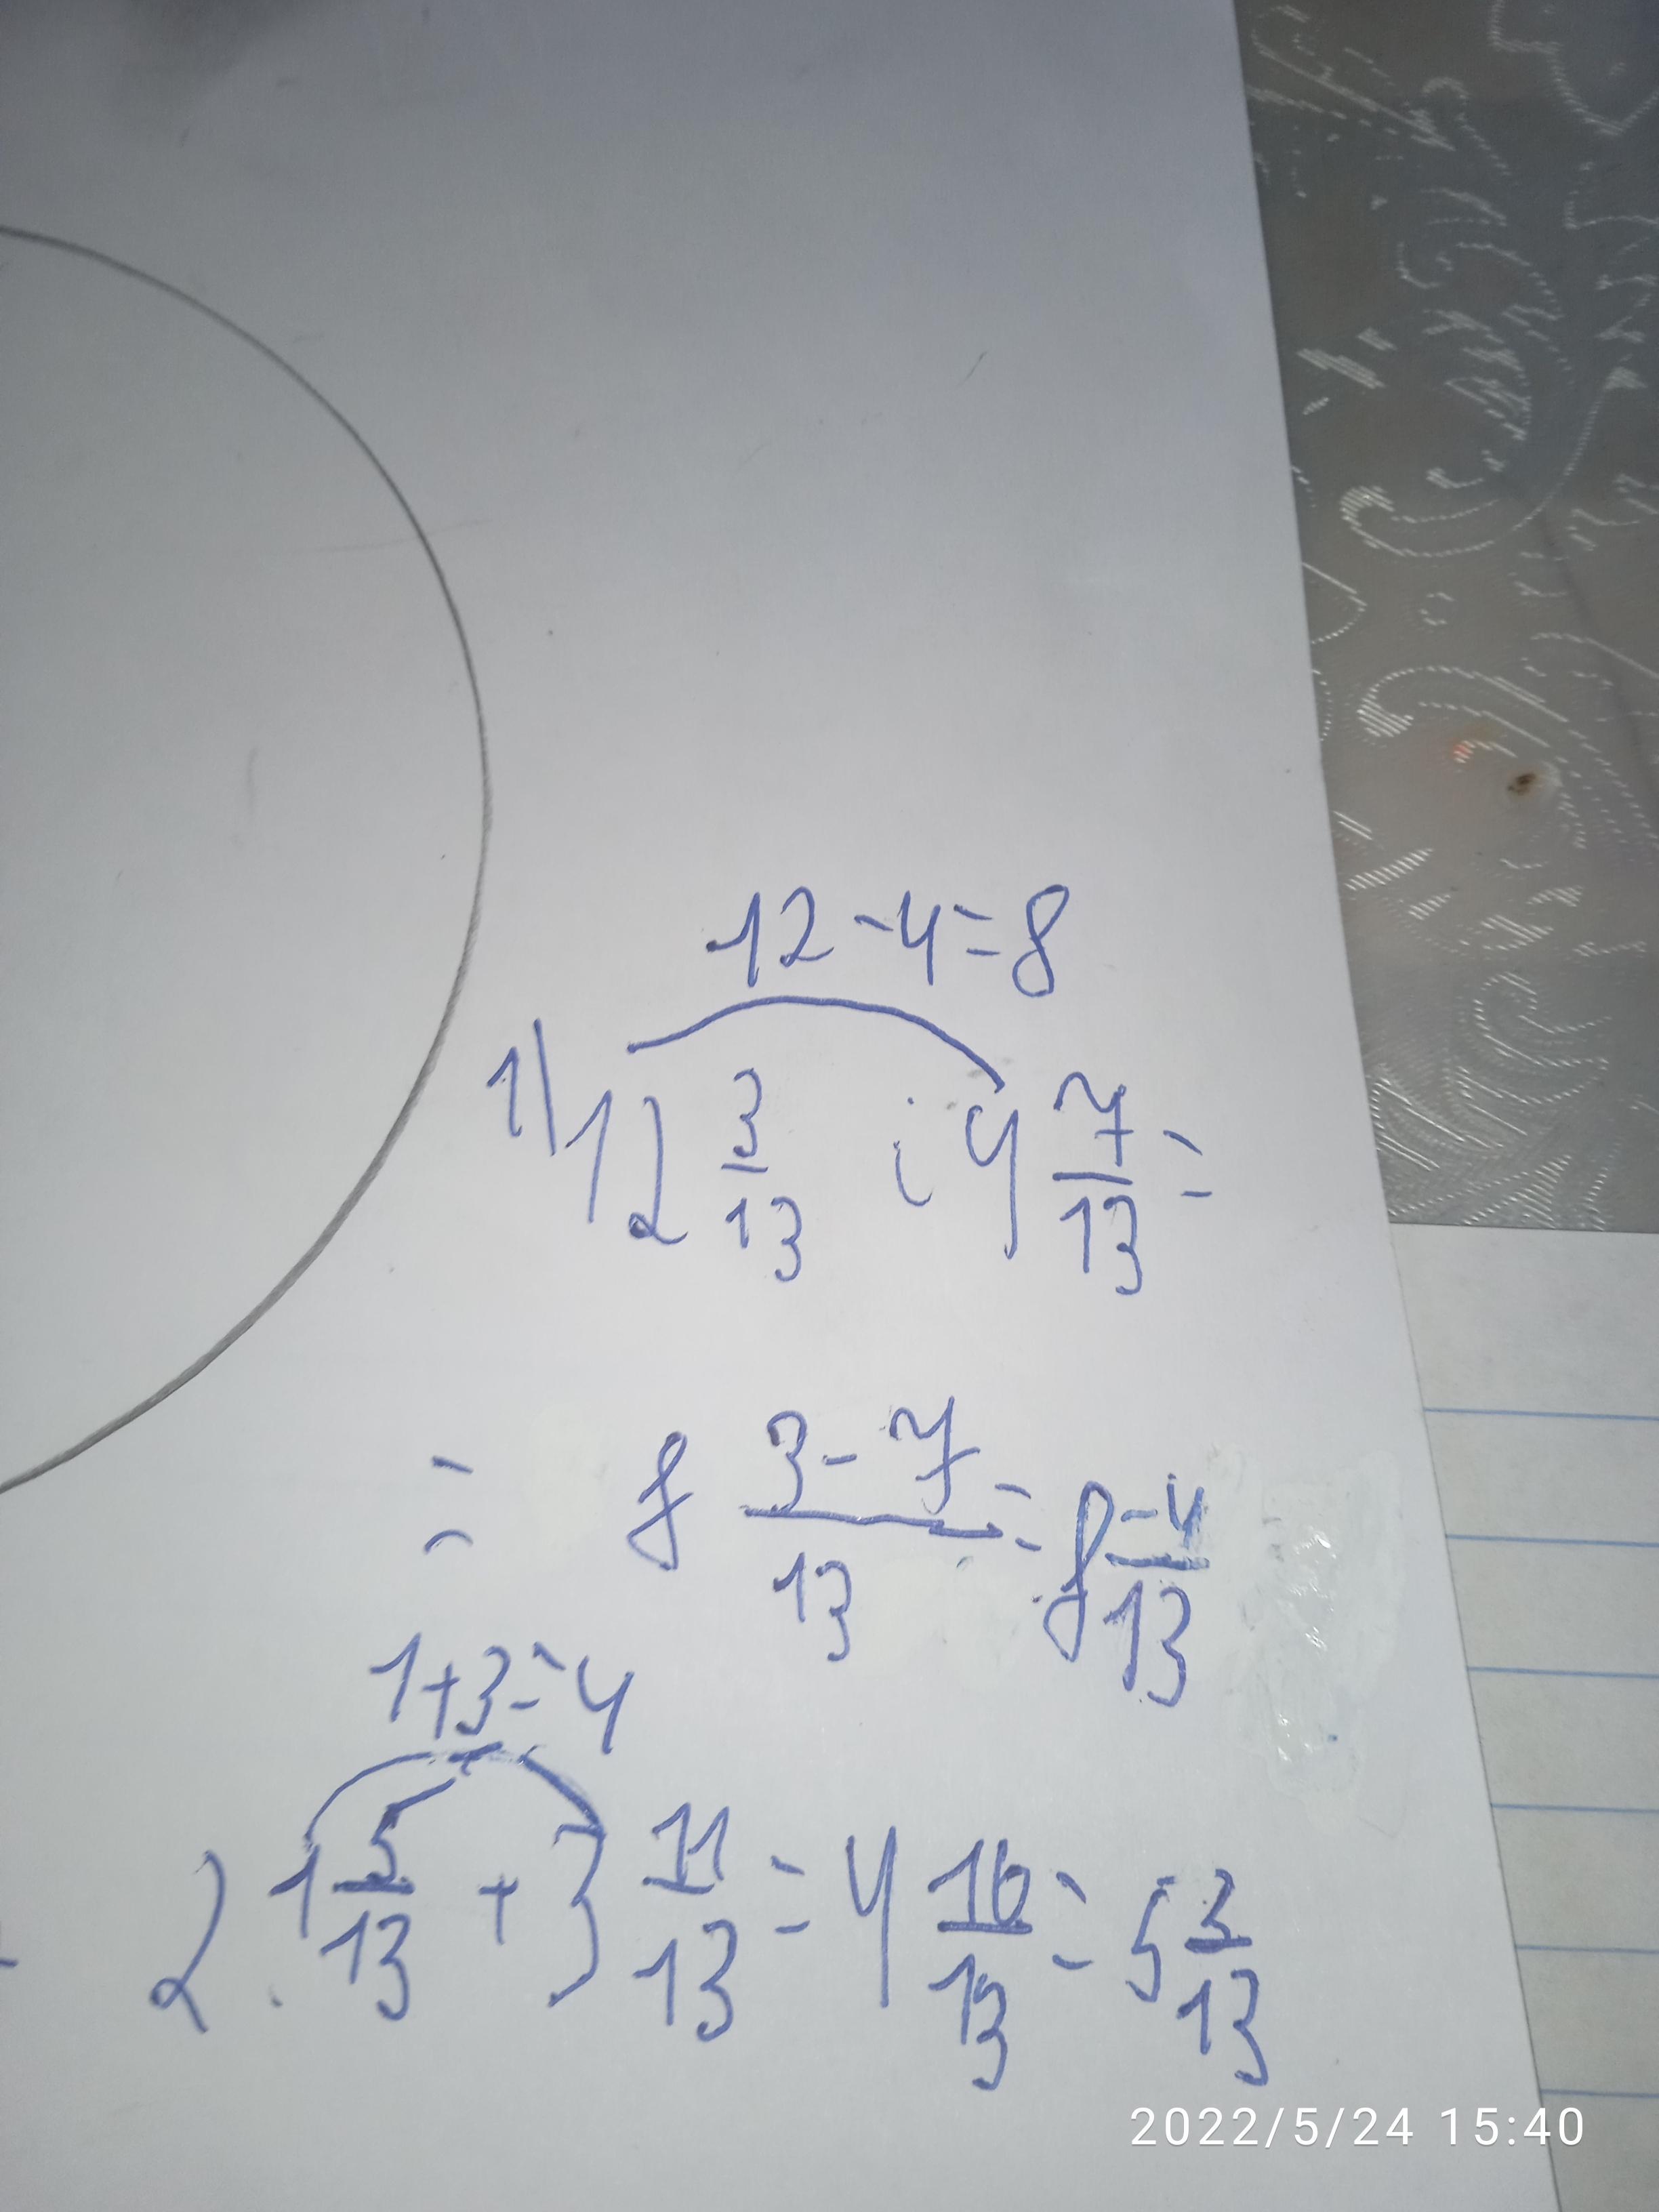 12-4=8
1) 12 3/13 - 4 7/13 =
= 8 3-7/13 = 8 -4/13
1+3=4
2) 1 5/13 + 3 11/13 = 4 16/13 = 5 3/13
2022/5/24 15:40